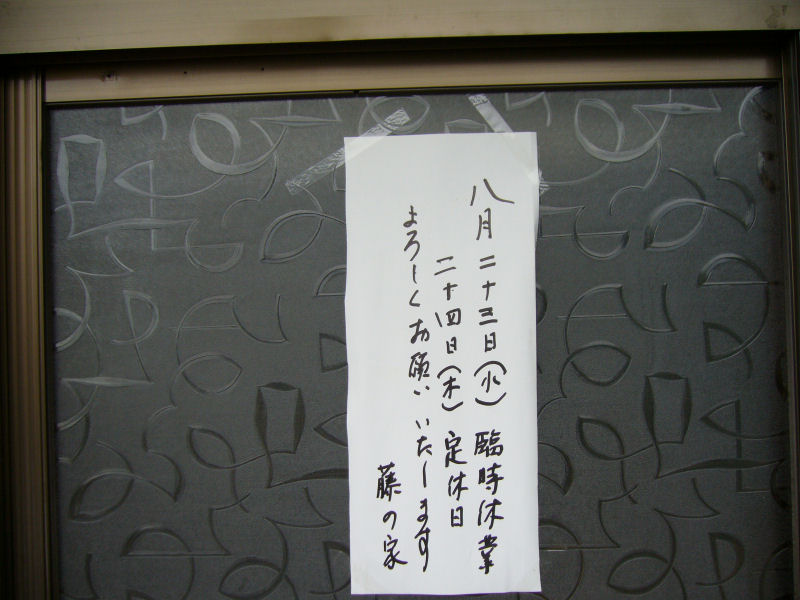 八月二十三日(水)臨時休業
二十四日(木)定休日
よろしくお願いいたします
藤の家